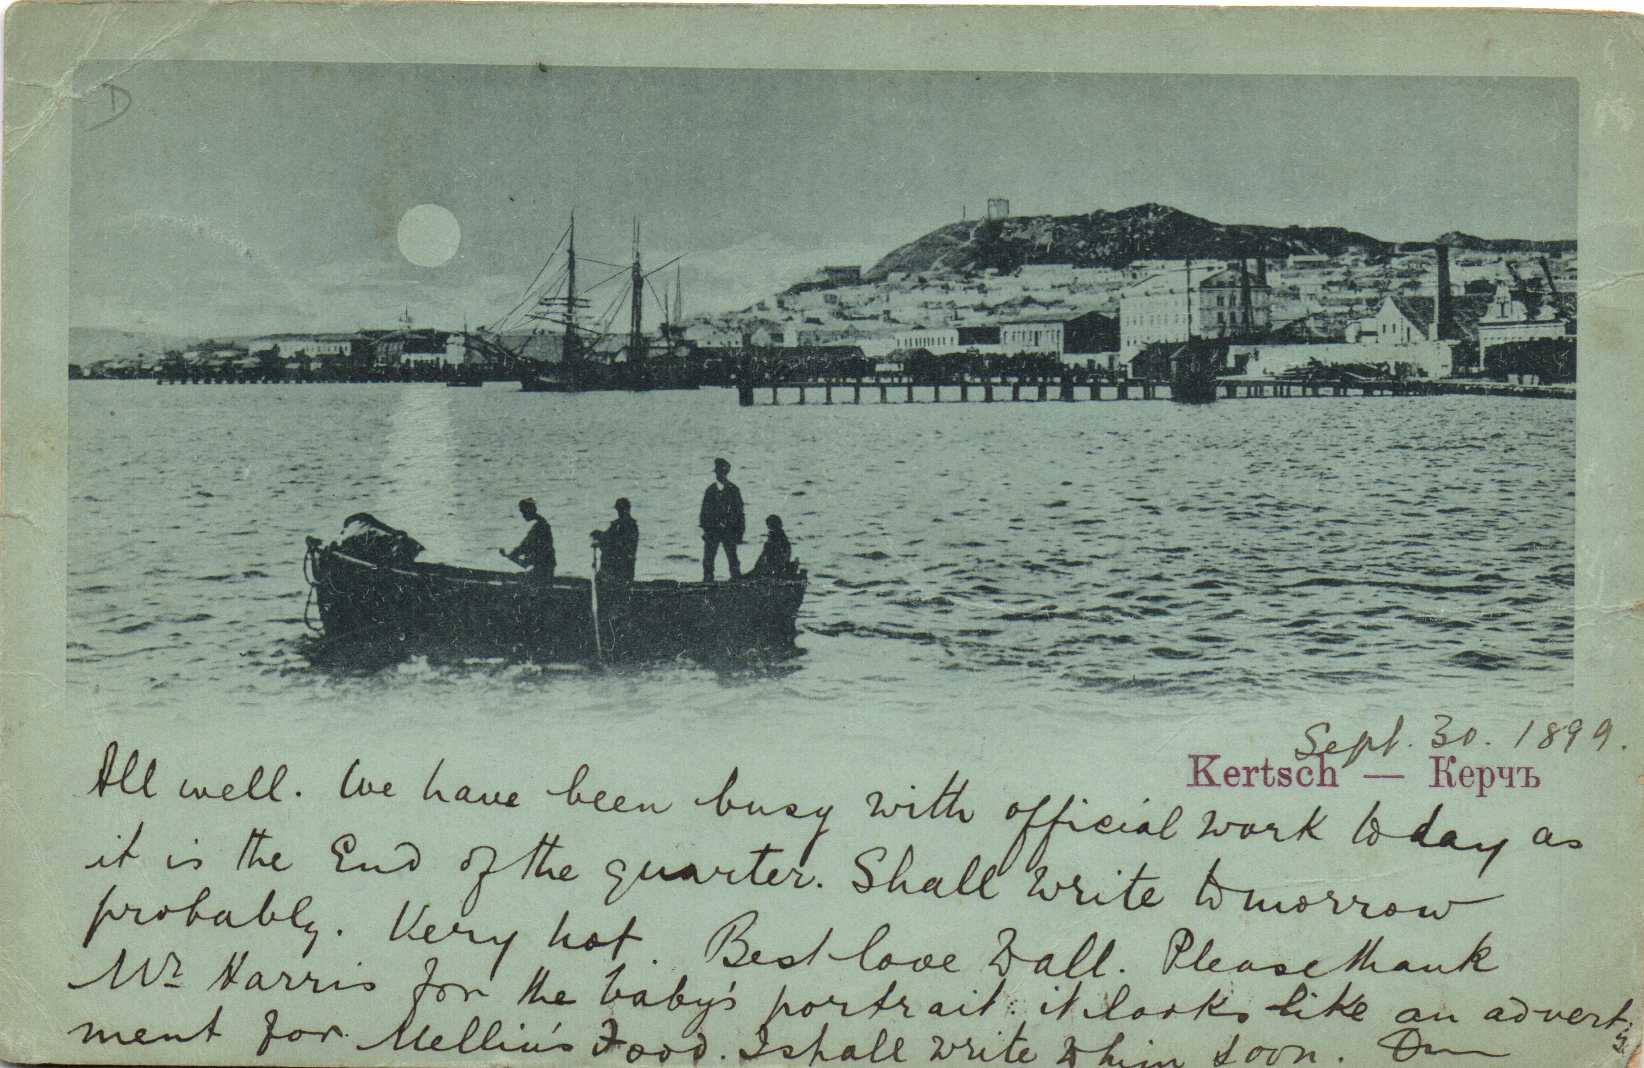 D
Sept. 30. 1899.
Kertsch — Керчъ
All well. We have been busy with official work today as
it is the End of the quarter. Shall write tomorrow
probably. Very hot. Best love to all. Please thank
Mr Harris for the baby's portrait. it looks like an advert
ment for Mellin's Food. I shall write to him soon.